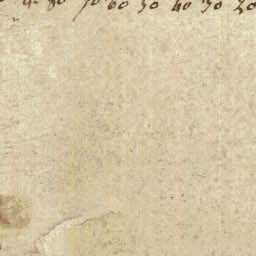 80 70 60 50 40 30 20